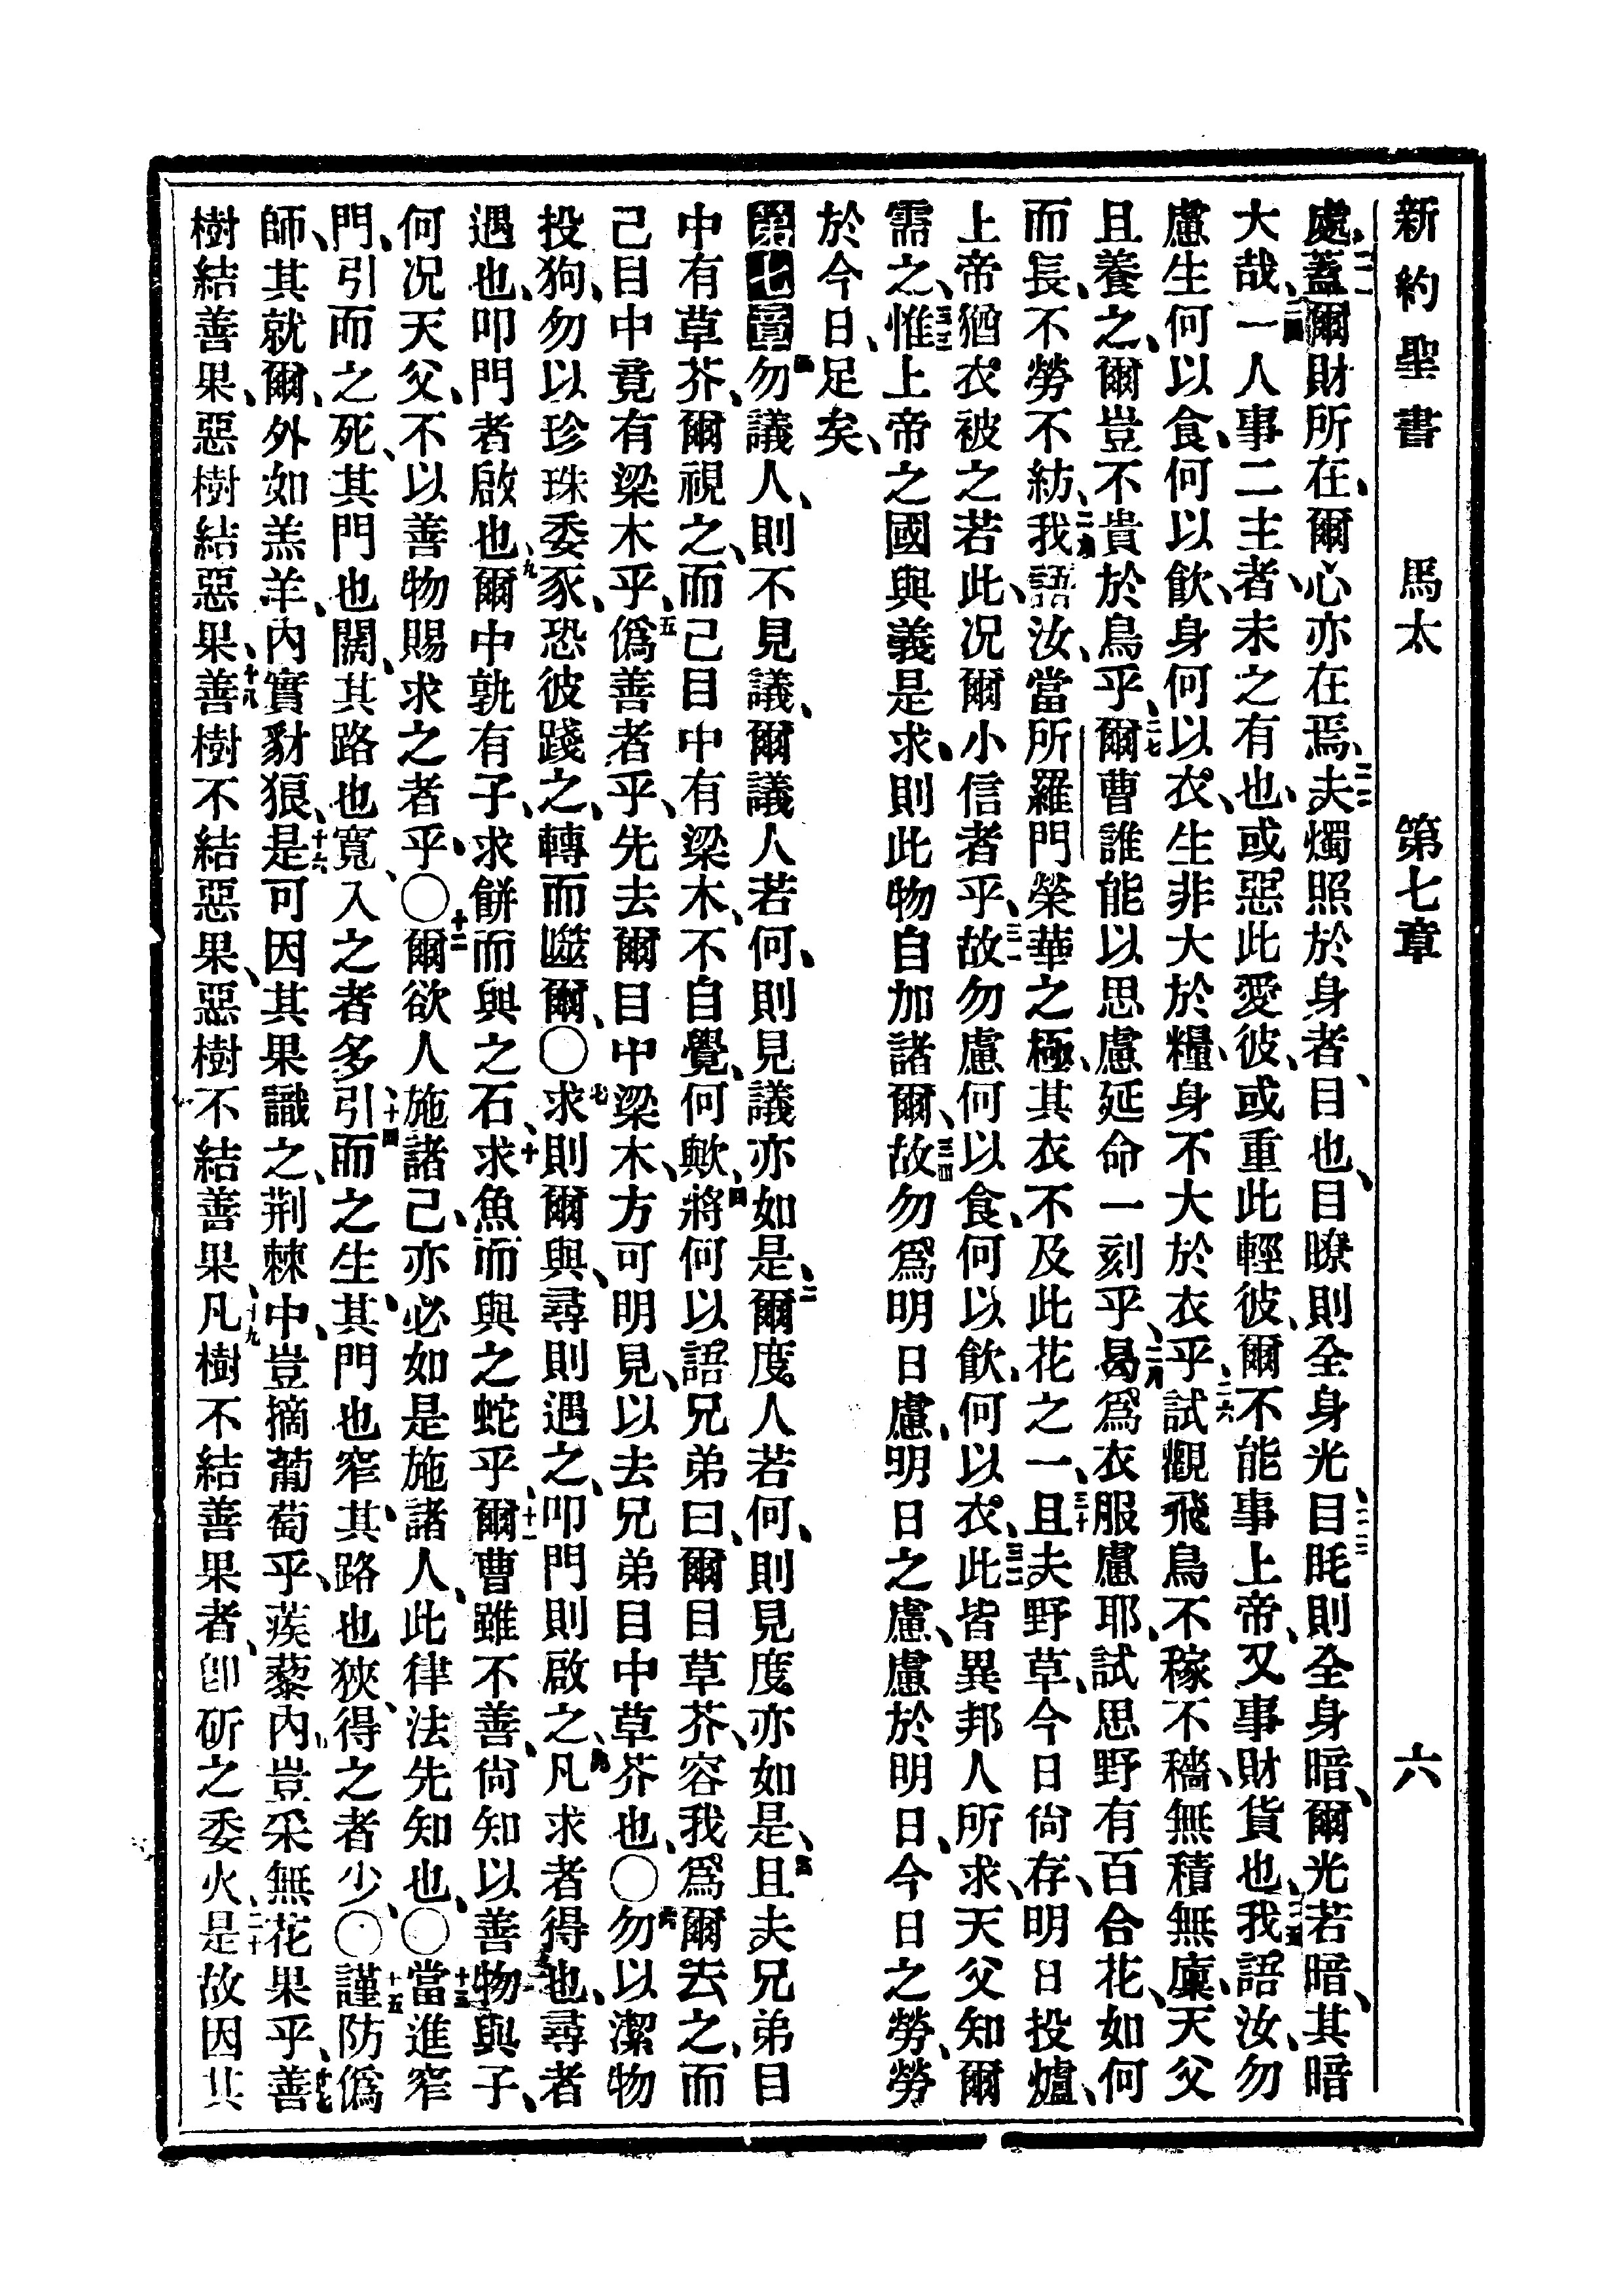 新約聖書 馬太 第七章 六
處、二一蓋爾財所在、爾心亦在焉、二二夫燭照於身者、目也、目瞭則全身光、二三目眊則全身暗、爾光若暗、其暗
大哉、二四一人事二主者、未之有也、或惡此愛彼、或重此輕彼、爾不能事上帝、又事財貨也、二五我語汝、勿
慮生何以食、何以飲、身何以衣、生非大於糧、身不大於衣乎、二六試觀飛鳥、不稼不穡、無積無廩、天父
且養之、爾豈不貴於鳥乎、二七爾曹誰能以思慮延命一刻乎、二八曷爲衣服慮耶、試思野有百合花、如何
而長、不勞不紡、二九我語汝、當所羅門榮華之極、其衣不及此花之一、三十且夫野草、今日尙存、明日投爐、
上帝猶衣被之若此、况爾小信者乎、三一故勿慮何以食、何以飲、何以衣、三二此皆異邦人所求、天父知爾
需之、三三惟上帝之國與義是求、則此物自加諸爾、三四故勿爲明日慮、明日之慮、慮於明日、今日之勞、勞
於今日、足矣、
第七章 勿議人、則不見議、爾議人若何、則見議亦如是、二爾度人若何、則見度亦如是、三且夫兄弟目
中有草芥、爾視之、而己目中有梁木、不自覺、何歟、四將何以語兄弟曰、爾目草芥、容我爲爾去之、而
己目中竟有梁木乎、五僞善者乎、先去爾目中梁木、方可明見、以去兄弟目中草芥也、○六勿以潔物
投狗、勿以珍珠委豕、恐彼踐之、轉而噬爾、○七求則爾與、尋則遇之、叩門則啟之、八凡求者得也、尋者
遇也、叩門者啟也、九爾中孰有子、求餅而與之石、十求魚而與之蛇乎、十一爾曹雖不善、尙知以善物與子、
何况天父、不以善物賜求之者乎、○十二爾欲人施諸己、亦必如是施諸人、此律法先知也、○十三當進窄
門、引而之死、其門也闊、其路也寬、入之者多、十四引而之生、其門也窄、其路也狹、得之者少、○十五謹防僞
師、其就爾、外如羔羊、內實豺狼、十六是可因其果識之、荆棘中、豈摘葡萄乎、蒺藜內、豈采無花果乎、十七善
樹結善果、惡樹結惡果、十八善樹不結惡果、惡樹不結善果、十九凡樹不結善果者、卽斫之委火、二十是故因其